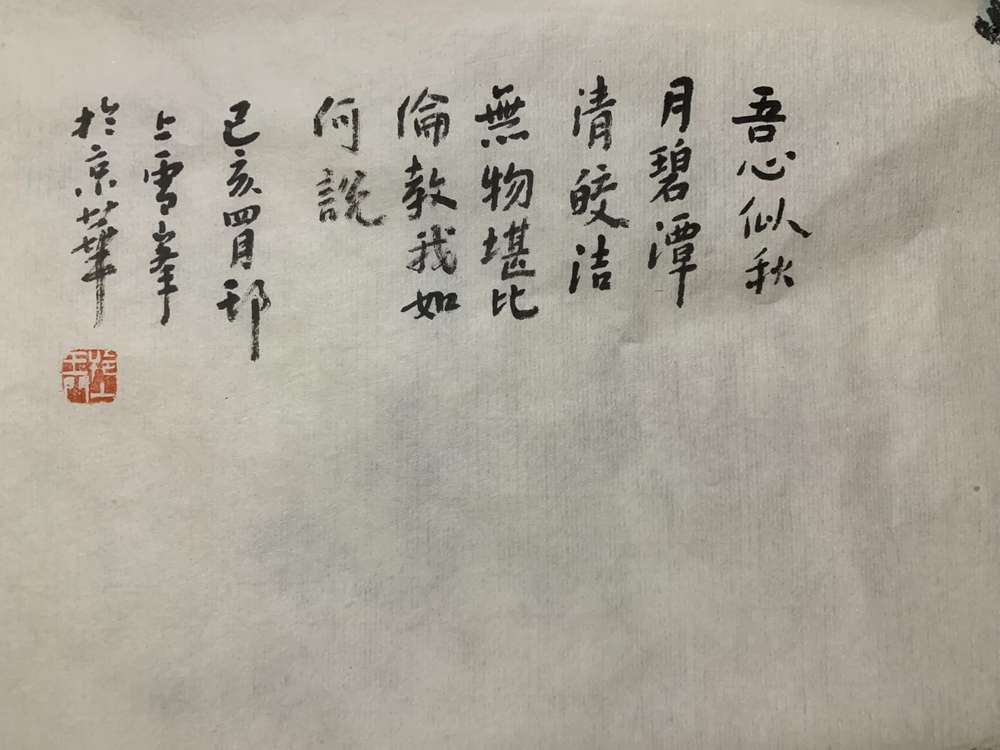 吾心似秋
月碧潭
清皎洁
無物堪比
倫教我如
何說
己亥四月邘
上雪峯
於京華